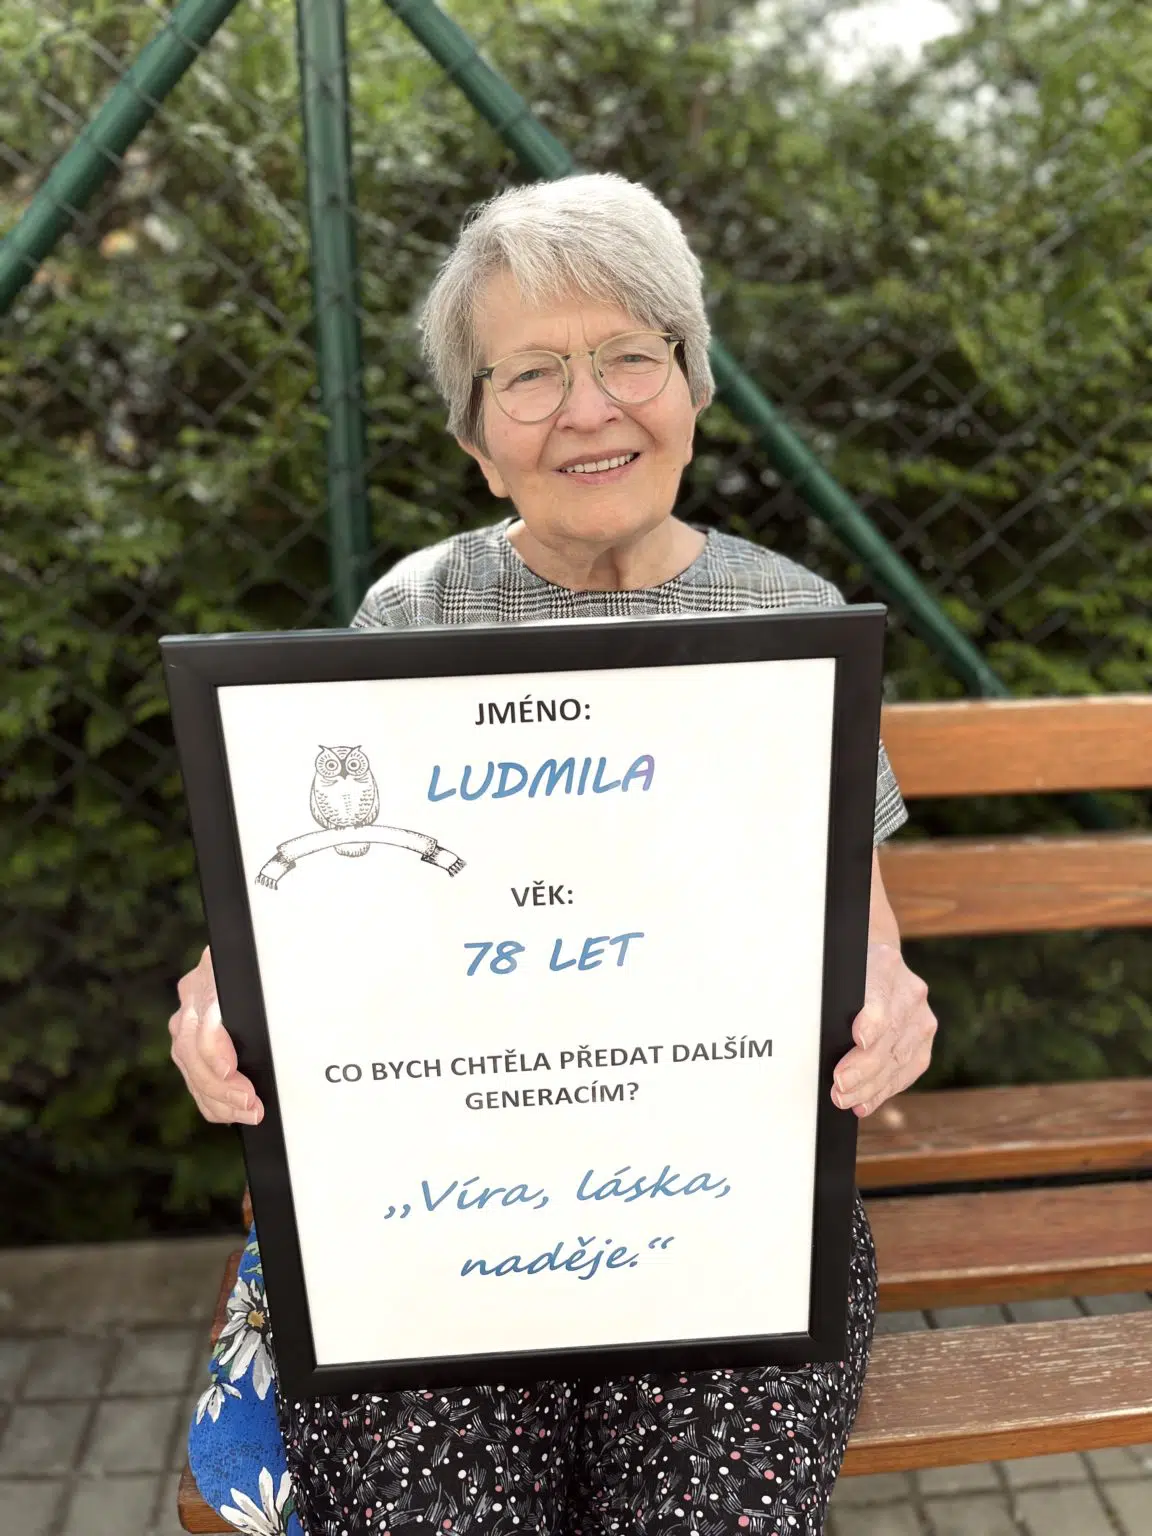 JMÉNO:
LUDMILA
VĚK:
78 LET
CO BYCH CHTĚLA PŘEDAT DALŠÍM
GENERACÍM?
„Víra, láska,
naděje.“